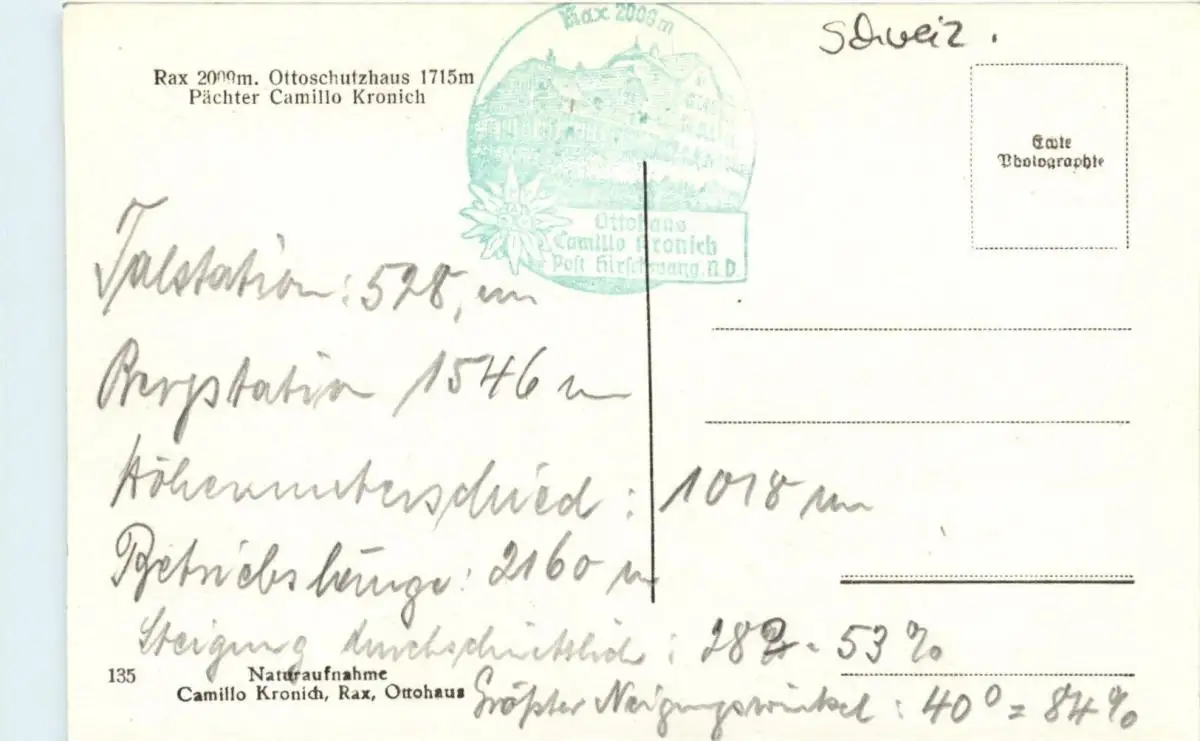 Schweiz.
Rax 2009m
Rax 2000m. Ottoschutzhaus 1715m
Pächter Camillo Kronich
Ottohaus
Camillo Kronich
Post Hirschwang, N.D.
Carte
Photographie
Talstation: 528, m
Bergstation 1546 m
Höhenunterschied: 1018 m
Betriebslänge: 2160 m
Steigung durchschnittlich: 28 - 53%
135
Naturaufnahme
Camillo Kronich, Rax, Ottohaus
Größter Neigungswinkel: 40° = 84%